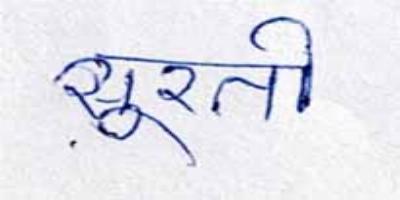 सूरती